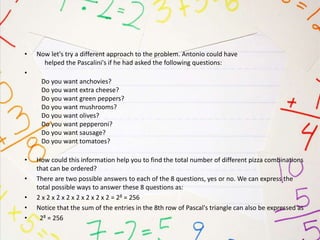 ÷ 2 = 2
• Now let's try a different approach to the problem. Antonio could have
helped the Pascalini's if he had asked the following questions:
•
Do you want anchovies?
Do you want extra cheese?
Do you want green peppers?
Do you want mushrooms?
Do you want olives?
Do you want pepperoni?
Do you want sausage?
Do you want tomatoes?
• How could this information help you to find the total number of different pizza combinations
that can be ordered?
• There are two possible answers to each of the 8 questions, yes or no. We can express the
total possible ways to answer these 8 questions as:
• 2 x 2 x 2 x 2 x 2 x 2 x 2 x 2 = 2⁸ = 256
• Notice that the sum of the entries in the 8th row of Pascal's triangle can also be expressed as
2⁸ = 256
7 - 2 = 5